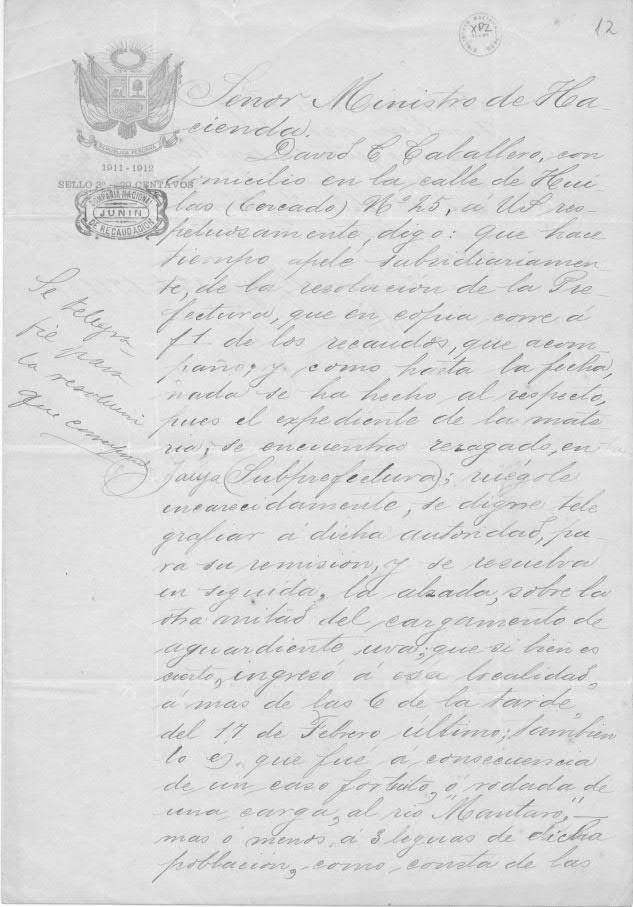 12
XPZ
REPUBLICA PERUANA
1911-1912
SELLO 3º-20 CENTAVOS
COMPAÑIA NACIONAL
JUNIN
DE RECAUDACION
Señor Ministro de Ha-
cienda.
David C Caballero, con
domicilio en la calle de
(Cercado) Nº 25, á US res-
petuosamente, digo: que hace
tiempo apelé subsidiariamen-
te, de la resolucion de la Pre-
fectura, que en copia corre á
f1 de los recaudos, que acom-
paño; y como hasta la fecha,
nada se ha hecho al respecto,
pues el expediente de la mate-
ria, se encuentra rezagado, en
Jauja (Subprefectura); ruégole
encarecidamente, se digne tele
grafiar á dicha autoridad, pa-
ra su remision, y se resuelva
en seguida, la alzada, sobre la
otra mitad del cargamento de
aguardiente uva; que si bien es
cierto, ingresó á esa localidad,
á mas de las 6 de la tarde
del 17 de Febrero último; tambien
lo es, que fué á consecuencia
de un caso fortuito, ó rodada de
una carga, al rio "Mantaro,"-
mas ó menos, á 3 leguas de dicha
poblacion, como consta de las
Se telegra-
fie para
la resolucion
que